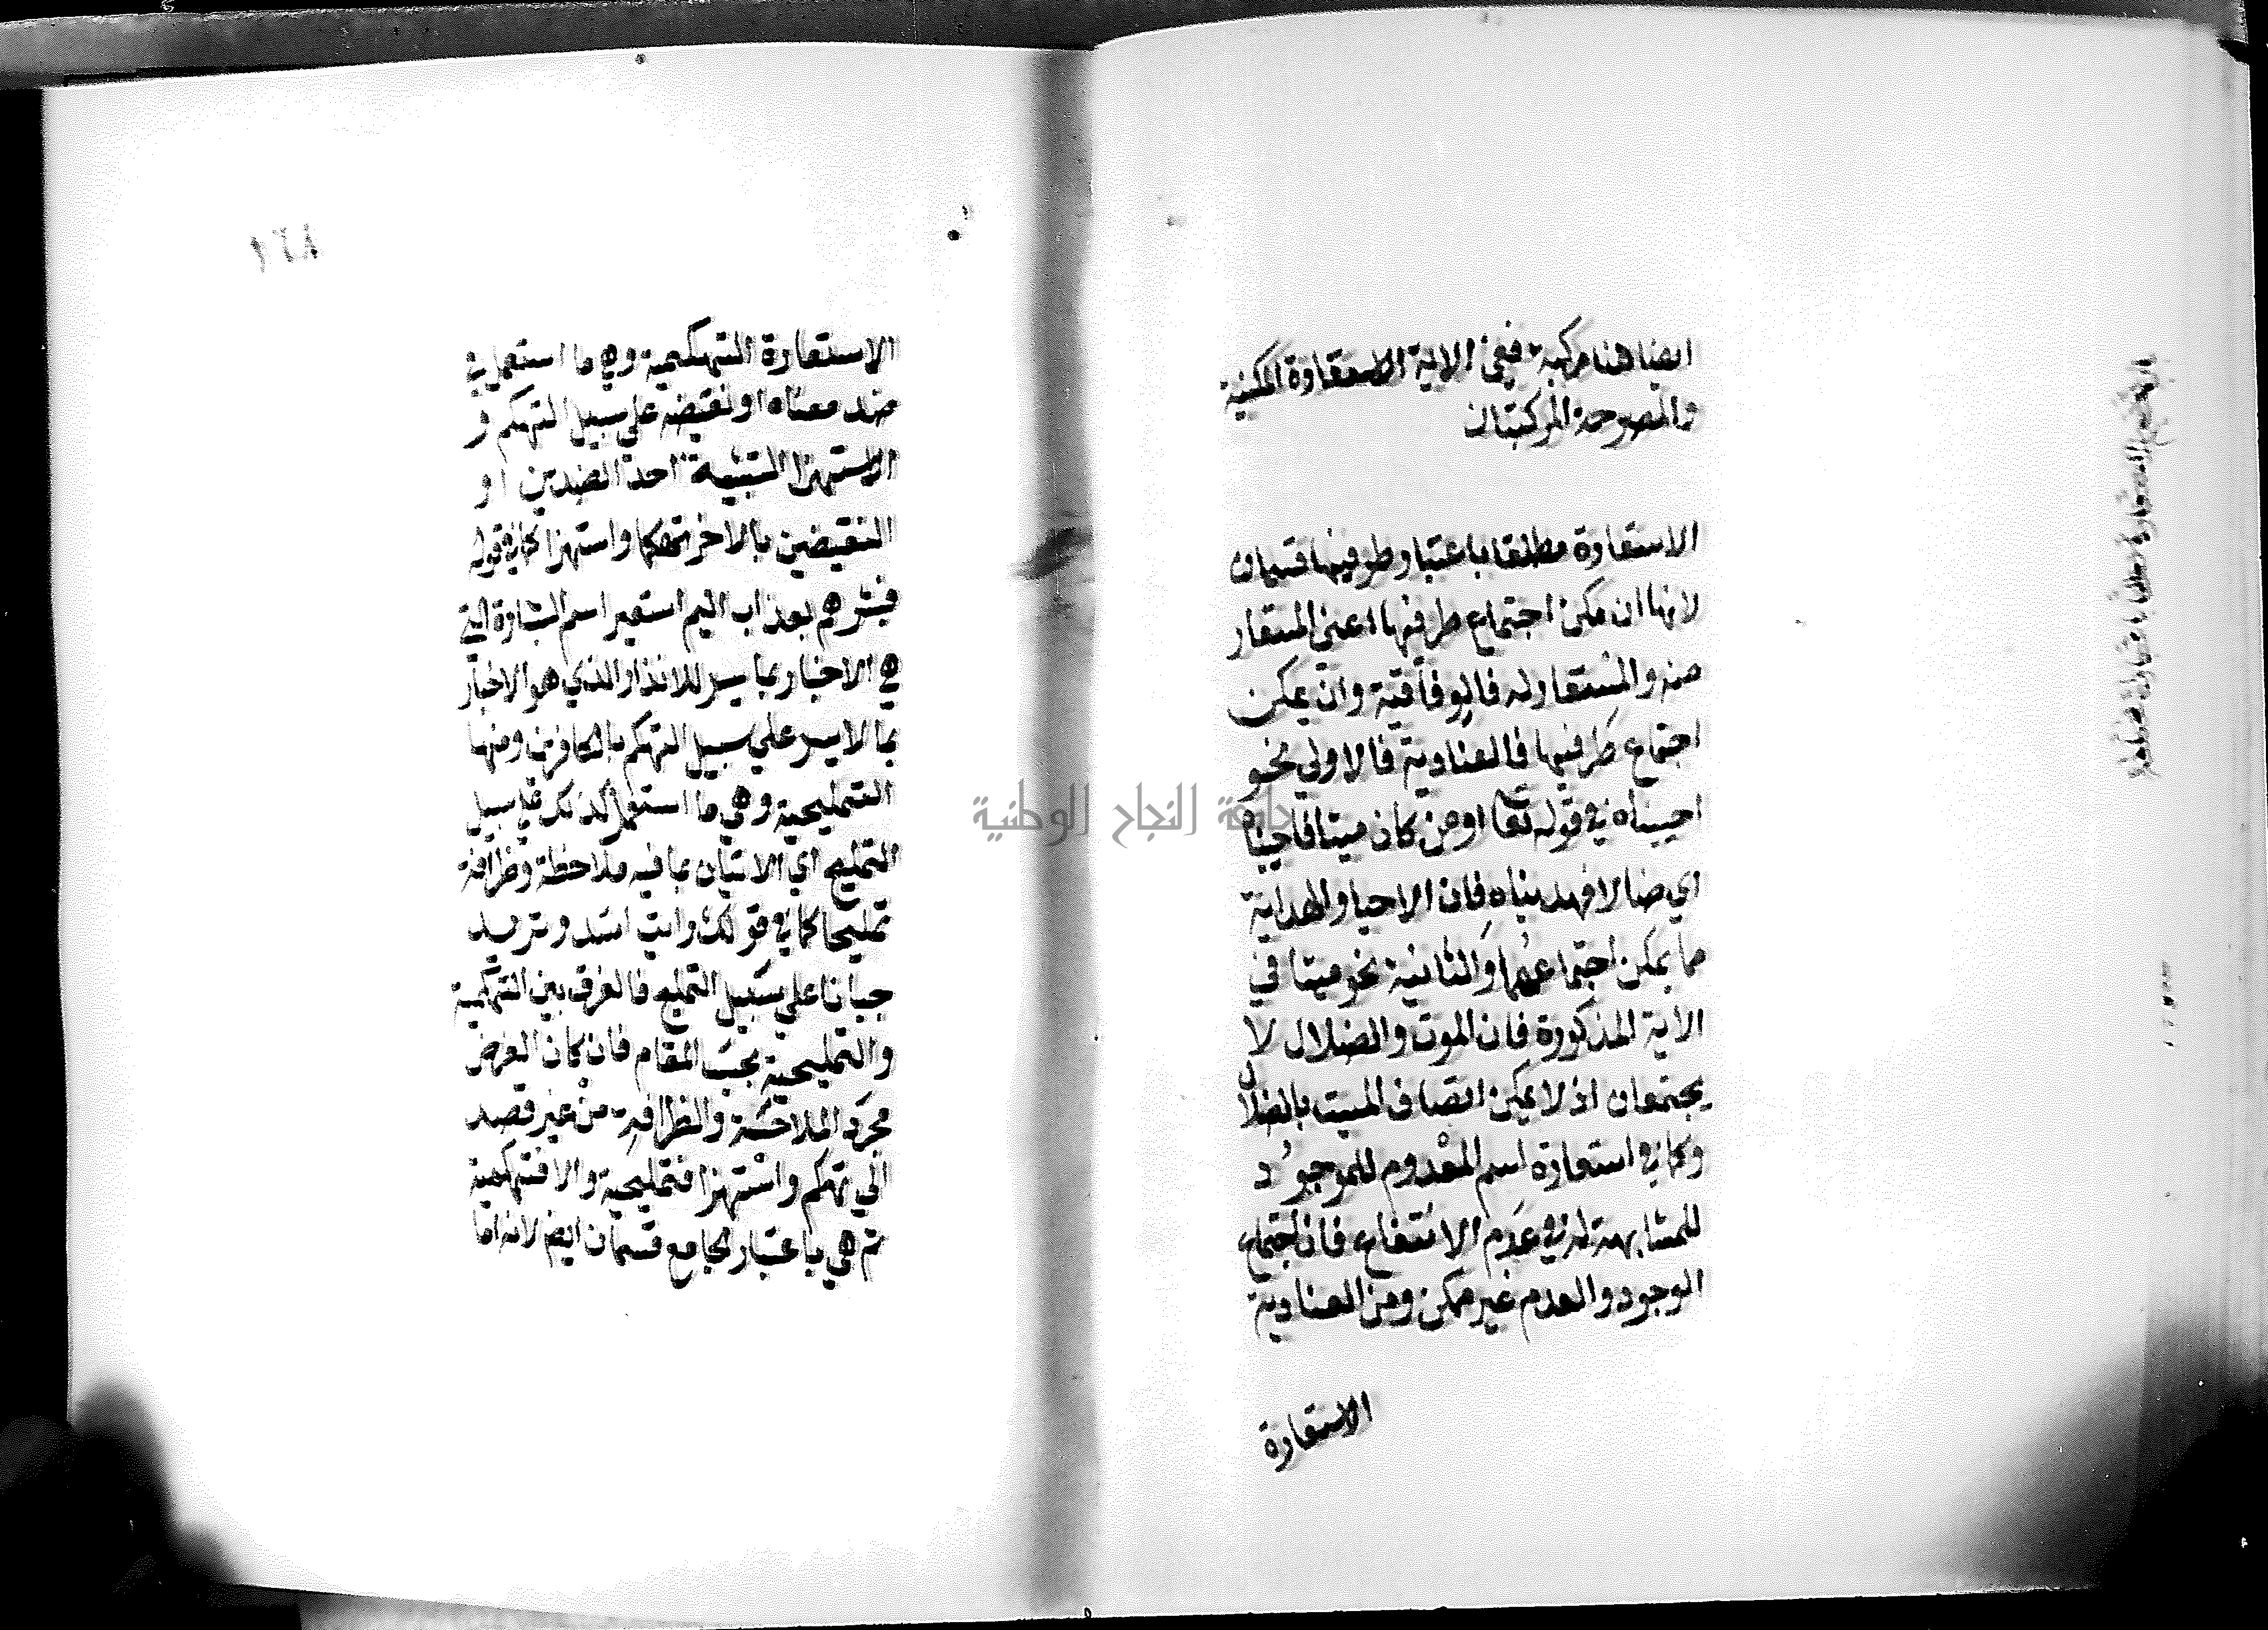 ايضا هنا مركبة ففي الاية الاستعارة المكنية
والمصرحة المركبتان
الاستعارة مطلقا باعتبار طرفيها قسمان
لانها ان مكن اجتماع طرفيها اعني المستعار
منه والمستعار له فالوفاقية وان يمكن
اجتماع طرفيها فالعنادية فالاولي نحو
احييناه في قوله تعا اومن كان ميتا فاحيناه
اي ضالا فهديناه فان الاحيا والهداية
مما يمكن اجتماعهما والثانية نحو ميتا في
الاية المذكورة فان الموت والضلال لا
يجتمعان اذ لا يمكن اتصاف الميت بالضلال
وكما في استعارة اسم المعدوم للموجود
للمشابهة له في عدم الانتفاع فان اجتماع
الوجود والعدم غير ممكن ومن العنادية
الاستعارة
جامعة النجاح الوطنية
١٦٨
الاستعارة التهكمية وهي ما استعمل في
ضد معناه او نقيضه علي سبيل التهكم و
الاستهزا لتشبيه احد الضدين او
النقيضين بالاخر تهكما واستهزا كما في قوله
فبشرهم بعذاب اليم استعير اسم البشارة التي
هي الاخبار بما يسر للانذار الذي هو الاخبار
بما لا يسر علي سبيل التهكم بالكافرين ومنها
التمليحية وهي ما استعمل كذلك علي سبيل
التمليح اي الاتيان بما فيه ملاحظة وظرافة
تمليحا كما في قولك رايت اسد وتريد
جبانا علي سبيل التمليح فالفرق بين التهكمية
والتمليحية بحسب المقام فان كان الغرض
مجرد الملاحة والظرافة من غير قصد
الي تهكم واستهزا فتمليحية والا فتهكمية
ثم هي باعتبار الجامع قسمان ايضا لانه اما